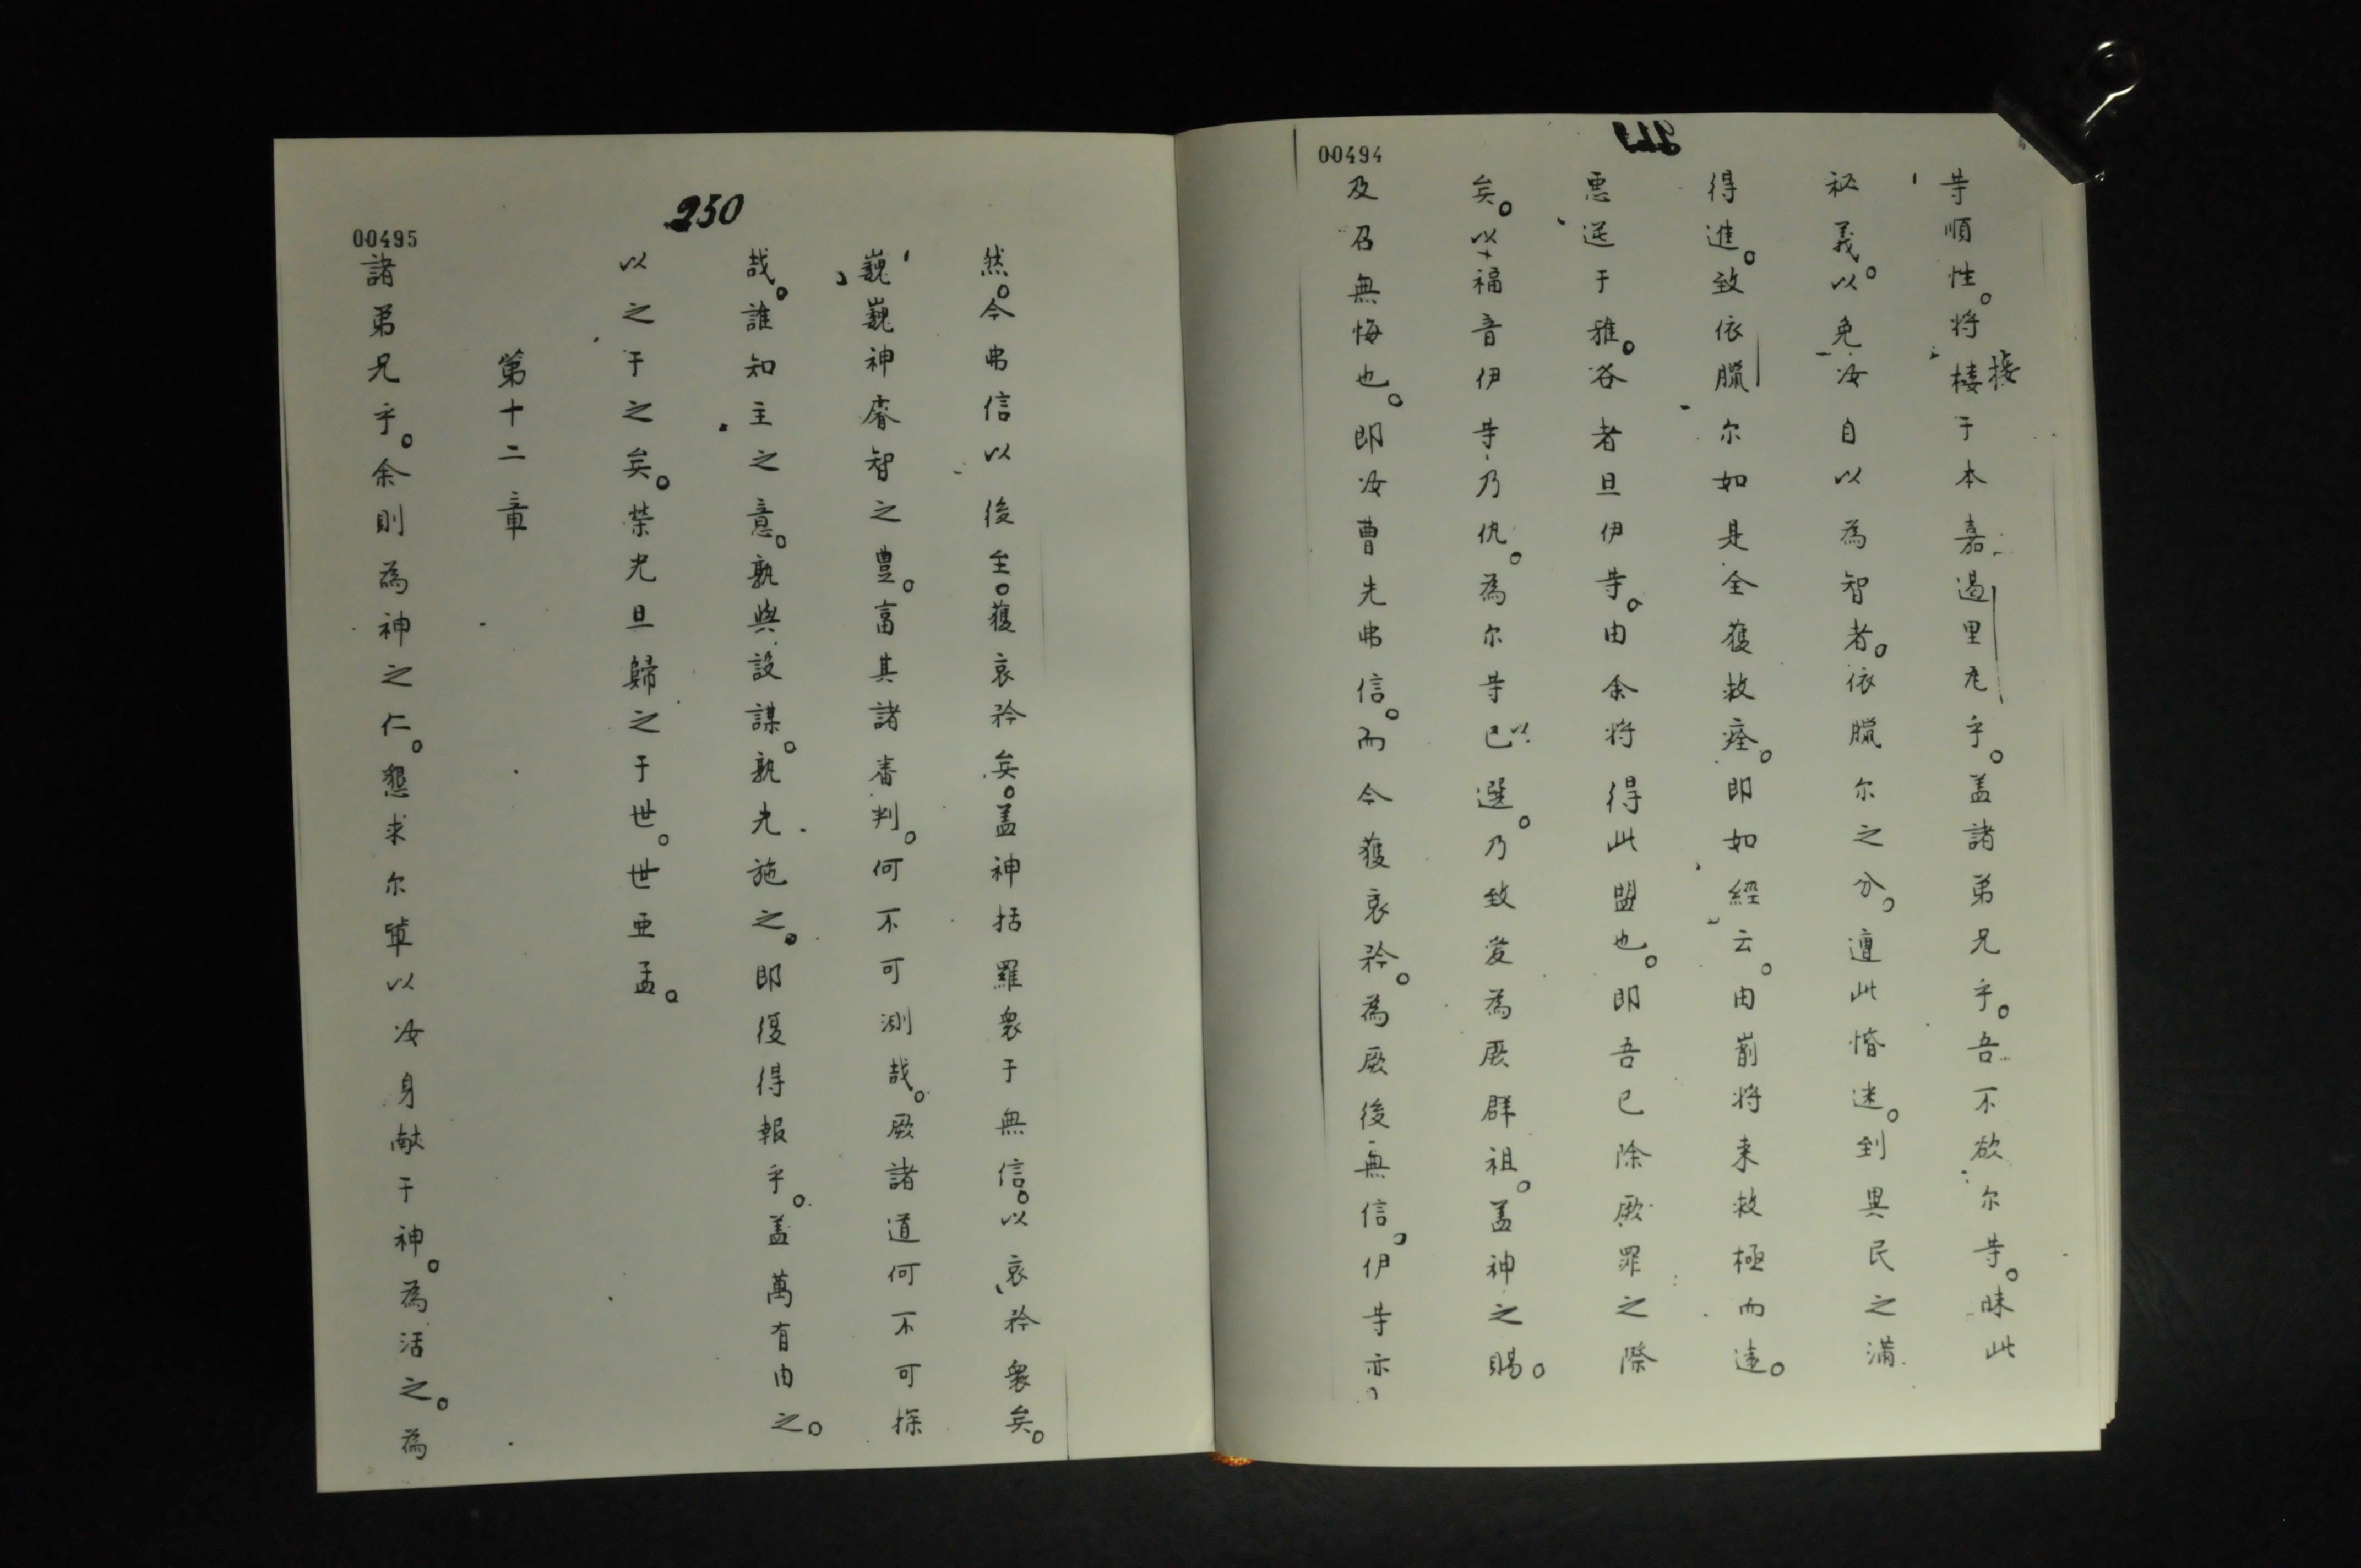 00494
䒭順性。将棲于本嘉過里𠃵乎。盖諸弟兄乎。吾不欲尔䒭。昧此
接
秘義。以免汝自以為智者。依臘尔之分。遭此惛迷。到異民之滿
得進。致依臘尔如是全獲救痊。即如經云。由峝将来救極而遠。
悪送于雅。谷者旦伊䒭。由余将得此盟也。即吾已除厥罪之際
矣。以福音伊䒭乃仇。為尔䒭已選。乃致愛為厥群祖。盖神之賜。
以
及召無悔也。即汝曹先弗信。而今獲哀矜。為厥後無信。伊䒭亦。
250
00495
然。今弗信以後至。獲哀矜矣。盖神括羅衆于無信。以哀矜衆矣。
巍巍神睿智之豊。富其諸審判。何不可測哉。厥諸道何不可探
哉。誰知主之意。孰與設謀。孰先施之。即復得報乎。盖萬有由之。
以之于之矣。榮光旦歸之于世。世亜孟。
第十二章
諸弟兄乎。余則為神之仁。懇求尔軰以汝身献于神。為活之。為